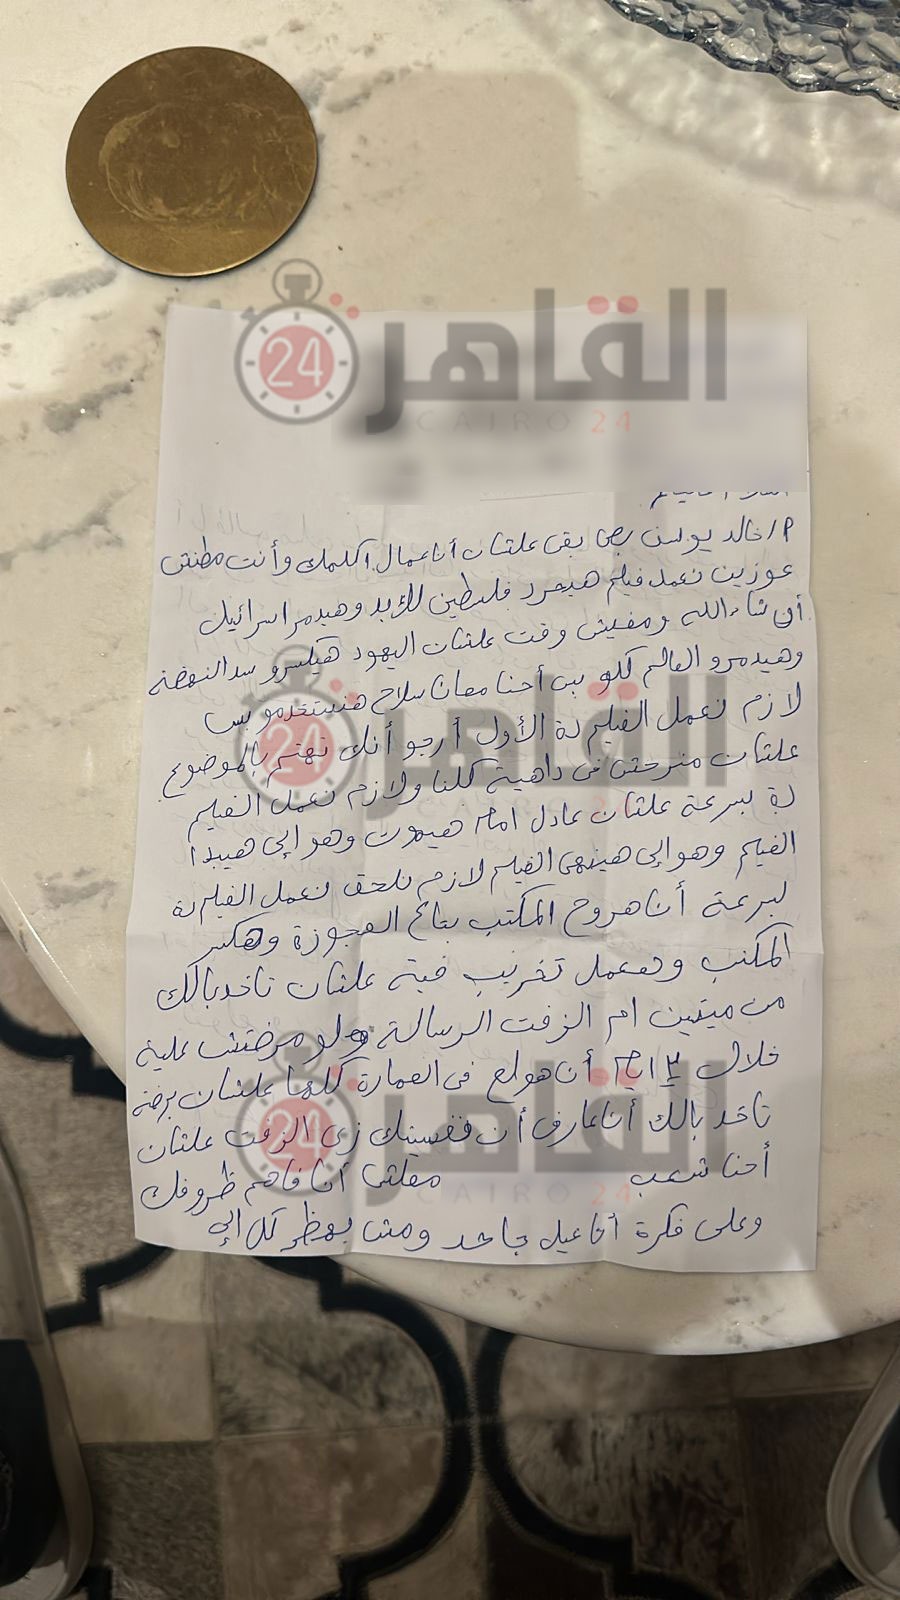 القاهرة 24
CAIRO 24
السلام عليكم
أ/ خالد يوسف بص بقى علشان أنا عمال اكلمك وأنت مطنش
عوزين نعمل فيلم هيحرر فلسطين للأبد وهيدمر اسرائيل
أن شاء الله ومفيش وقت علشان اليهود هيكسرو سد النهضة
وهيدمرو العالم كلو بس أحنا معانا سلاح هنستخدمو بس
لازم نعمل الفيلم دة الأول أرجو أنك تهتم بالموضوع
علشان منرحش فى داهية كلنا ولازم نعمل الفيلم
دة بسرعة علشان عادل امام هيموت وهو إلى هيبدا
الفيلم وهو إلى هينهى الفيلم لازم نلحق نعمل الفيلم دة
بسرعة أنا هروح المكتب بتاع العجوزة وهكسر
المكتب وهعمل تخريب فية علشان تاخد بالك
من ميتين ام الزفت الرسالة ولو مرضتش علية
خلال أيام أن هولع فى العمارة كلها علشان برضة
تاخد بالك أنا عارف أن نفسيتك زى الزفت علشان
أحنا شعب معلش أنا فاهم ظروفك
وعلى فكرة أنا عيل جاحد ومش بهظر كل إلى